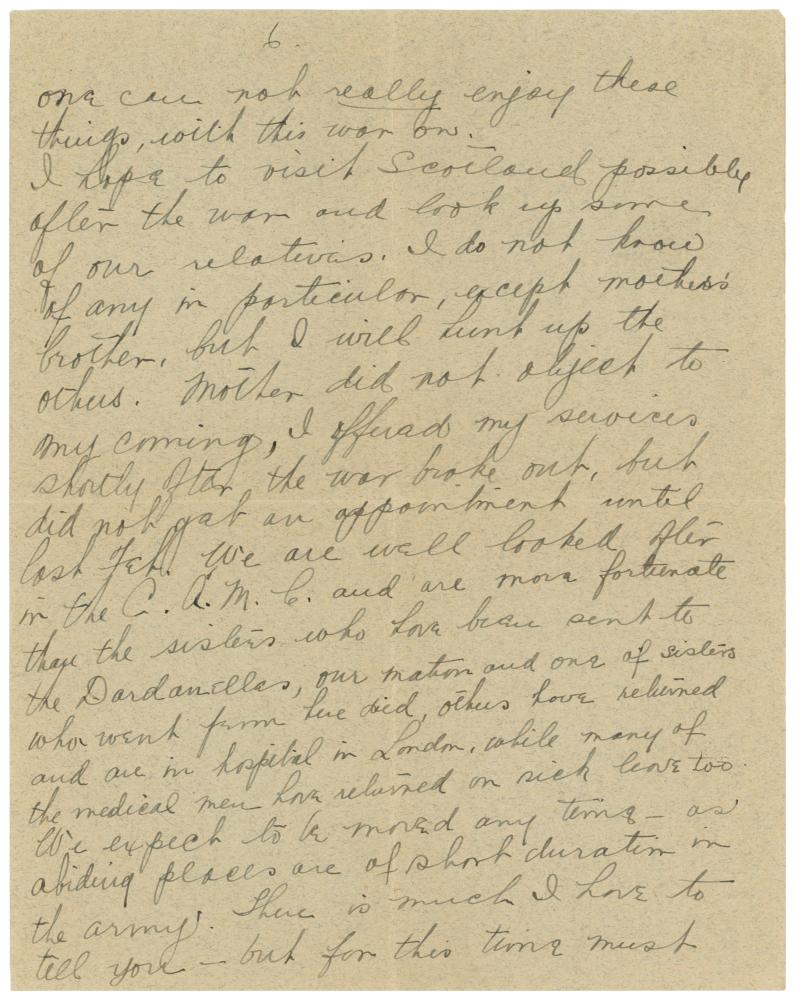 6.
one can not really enjoy these
things, with this war on.
I hope to visit Scotland possibly
after the war and look up some
of our relatives. I do not know
of any in particular, except mother's
brother, but I will hunt up the
others. Mother did not object to
my coming, I offered my services
shortly after the war broke out, but
did not get an appointment until
last Feb. We are well looked after
in the C. A. M. C. and are more fortunate
than the sisters who have been sent to
the Dardanelles, our matron and one of sisters
who went from here died, others have returned
and are in hospital in London, while many of
the medical men have returned on sick leave too.
We expect to be moved any time — as
abiding places are of short duration in
the army. There is much I have to
tell you — but for this time must